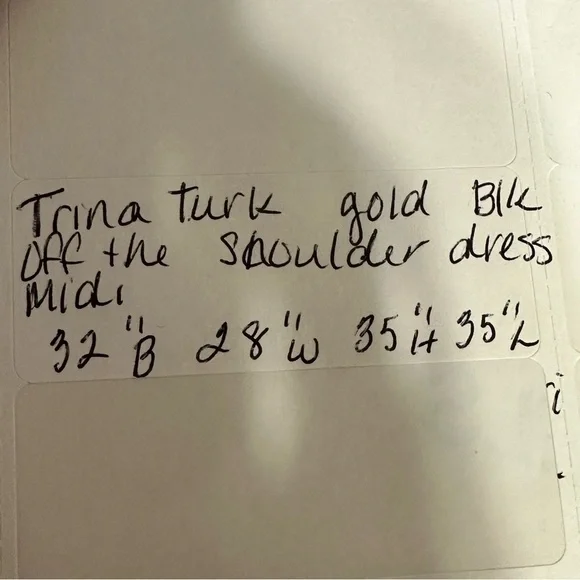 Trina Turk gold Blk
Off the Shoulder dress
Midi
32"B 28"W 35"H 35"L